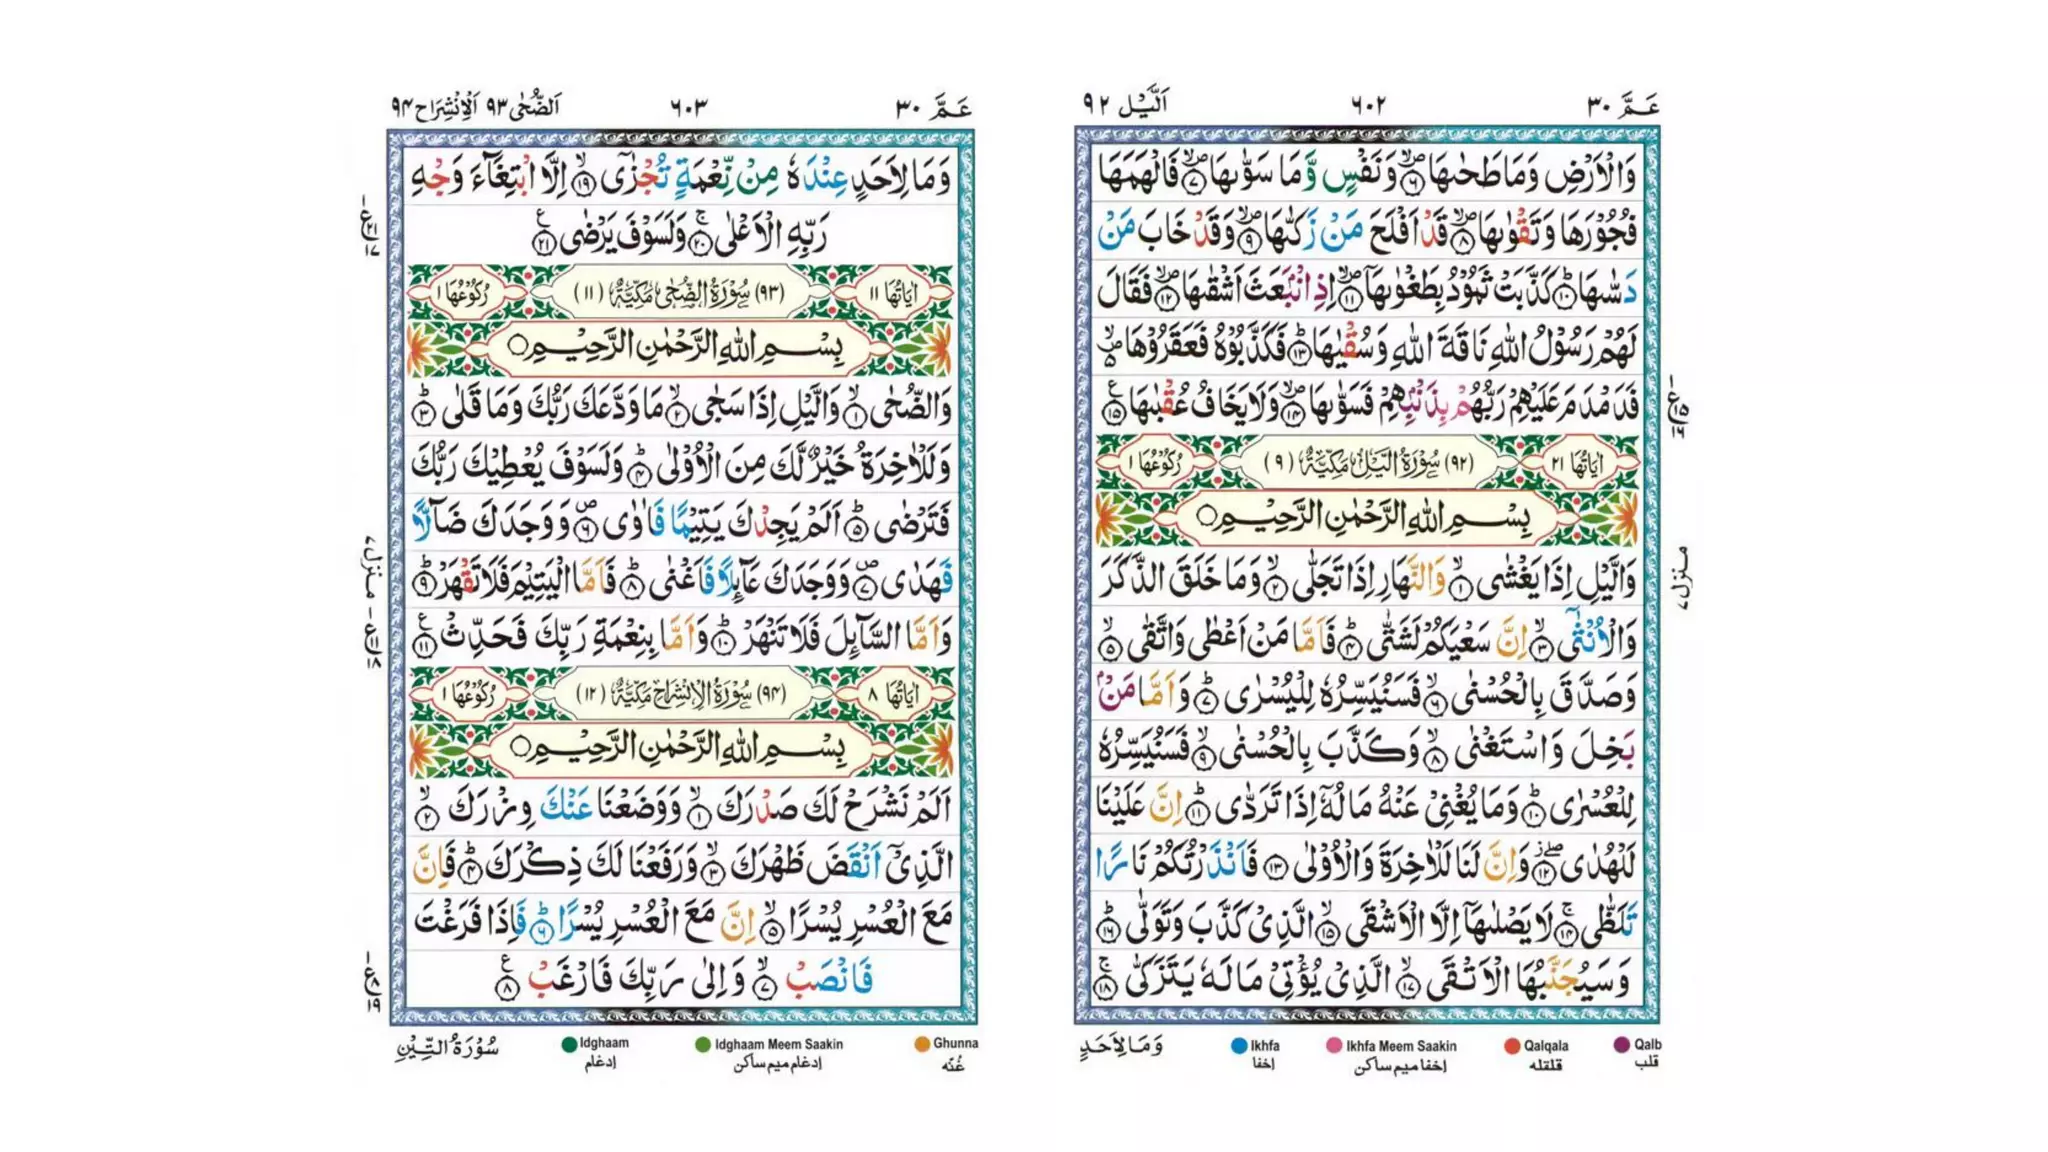 عَمَّ ٣٠
٦٠٢
اَلَّيْل ٩٢
وَالْاَرْضِ وَمَا طَحٰىهَا ۪ۙ﴿۶﴾ وَنَفْسٍ وَّمَا سَوّٰىهَا ۪ۙ﴿۷﴾ فَاَلْهَمَهَا
فُجُوْرَهَا وَتَقْوٰىهَا ۪ۙ﴿۸﴾ قَدْ اَفْلَحَ مَنْ زَكّٰىهَا ۪ۙ﴿۹﴾ وَقَدْ خَابَ مَنْ
دَسّٰىهَا ؕ﴿۱۰﴾ كَذَّبَتْ ثَمُوْدُ بِطَغْوٰىهَاۤ ۪ۙ﴿۱۱﴾ اِذِ انْۢبَعَثَ اَشْقٰىهَا ۪ۙ﴿۱۲﴾ فَقَالَ
لَهُمْ رَسُوْلُ اللّٰهِ نَاقَةَ اللّٰهِ وَسُقْيٰهَا ؕ﴿۱۳﴾ فَكَذَّبُوْهُ فَعَقَرُوْهَا ۪ۙ۵
فَدَمْدَمَ عَلَيْهِمْ رَبُّهُمْ بِذَنْۢبِهِمْ فَسَوّٰىهَا ۪ۙ﴿۱۴﴾ وَلَا يَخَافُ عُقْبٰهَا ۠﴿۱۵﴾
اٰيَاتُهَا ٢١
(٩٢) سُوْرَةُ الَّيْلِ مَكِّيَّةٌ (٩)
رُكُوْعُهَا ١
بِسْمِ اللّٰهِ الرَّحْمٰنِ الرَّحِيْمِ ○
وَالَّيْلِ اِذَا يَغْشٰى ۙ﴿۱﴾ وَالنَّهَارِ اِذَا تَجَلّٰى ۙ﴿۲﴾ وَمَا خَلَقَ الذَّكَرَ
وَالْاُنْثٰۤى ۙ﴿۳﴾ اِنَّ سَعْيَكُمْ لَشَتّٰى ؕ﴿۴﴾ فَاَمَّا مَنْ اَعْطٰى وَاتَّقٰى ۙ﴿۵﴾
وَصَدَّقَ بِالْحُسْنٰى ۙ﴿۶﴾ فَسَنُيَسِّرُهٗ لِلْيُسْرٰى ؕ﴿۷﴾ وَاَمَّا مَنْۢ
بَخِلَ وَاسْتَغْنٰى ۙ﴿۸﴾ وَكَذَّبَ بِالْحُسْنٰى ۙ﴿۹﴾ فَسَنُيَسِّرُهٗ
لِلْعُسْرٰى ؕ﴿۱۰﴾ وَمَا يُغْنِيْ عَنْهُ مَالُهٗۤ اِذَا تَرَدّٰى ؕ﴿۱۱﴾ اِنَّ عَلَيْنَا
لَلْهُدٰى ۖ﴿۱۲﴾ وَاِنَّ لَنَا لَلْاٰخِرَةَ وَالْاُوْلٰى ﴿۱۳﴾ فَاَنْذَرْتُكُمْ نَارًا
تَلَظّٰى ۚ﴿۱۴﴾ لَا يَصْلٰىهَاۤ اِلَّا الْاَشْقَى ۙ﴿۱۵﴾ الَّذِيْ كَذَّبَ وَتَوَلّٰى ؕ﴿۱۶﴾
وَسَيُجَنَّبُهَا الْاَتْقَى ۙ﴿۱۷﴾ الَّذِيْ يُؤْتِيْ مَالَهٗ يَتَزَكّٰى ۚ﴿۱۸﴾
منزل ٧
وَمَا لِاَحَدٍ
Ikhfa
إخفا
Ikhfa Meem Saakin
إخفا ميم ساكن
Qalqala
قلقله
Qalb
قلب
عَمَّ ٣٠
٦٠٣
اَلضُّحٰى ٩٣ اَلْاِنْشِرَاح ٩٤
وَمَا لِاَحَدٍ عِنْدَهٗ مِنْ نِّعْمَةٍ تُجْزٰۤى ۙ﴿۱۹﴾ اِلَّا ابْتِغَآءَ وَجْهِ
رَبِّهِ الْاَعْلٰى ۚ﴿۲۰﴾ وَلَسَوْفَ يَرْضٰى ﴿۲۱﴾
اٰيَاتُهَا ١١
(٩٣) سُوْرَةُ الضُّحٰى مَكِّيَّةٌ (١١)
رُكُوْعُهَا ١
بِسْمِ اللّٰهِ الرَّحْمٰنِ الرَّحِيْمِ ○
وَالضُّحٰى ۙ﴿۱﴾ وَالَّيْلِ اِذَا سَجٰى ۙ﴿۲﴾ مَا وَدَّعَكَ رَبُّكَ وَمَا قَلٰى ؕ﴿۳﴾
وَلَلْاٰخِرَةُ خَيْرٌ لَّكَ مِنَ الْاُوْلٰى ؕ﴿۴﴾ وَلَسَوْفَ يُعْطِيْكَ رَبُّكَ
فَتَرْضٰى ؕ﴿۵﴾ اَلَمْ يَجِدْكَ يَتِيْمًا فَاٰوٰى ۪﴿۶﴾ وَوَجَدَكَ ضَآلًّا
فَهَدٰى ۪﴿۷﴾ وَوَجَدَكَ عَآئِلًا فَاَغْنٰى ؕ﴿۸﴾ فَاَمَّا الْيَتِيْمَ فَلَا تَقْهَرْ ؕ﴿۹﴾
وَاَمَّا السَّآئِلَ فَلَا تَنْهَرْ ؕ﴿۱۰﴾ وَاَمَّا بِنِعْمَةِ رَبِّكَ فَحَدِّثْ ﴿۱۱﴾
اٰيَاتُهَا ٨
(٩٤) سُوْرَةُ الْاِنْشِرَاحِ مَكِّيَّةٌ (١٢)
رُكُوْعُهَا ١
بِسْمِ اللّٰهِ الرَّحْمٰنِ الرَّحِيْمِ ○
اَلَمْ نَشْرَحْ لَكَ صَدْرَكَ ۙ﴿۱﴾ وَوَضَعْنَا عَنْكَ وِزْرَكَ ۙ﴿۲﴾
الَّذِيْۤ اَنْقَضَ ظَهْرَكَ ۙ﴿۳﴾ وَرَفَعْنَا لَكَ ذِكْرَكَ ؕ﴿۴﴾ فَاِنَّ
مَعَ الْعُسْرِ يُسْرًا ۙ﴿۵﴾ اِنَّ مَعَ الْعُسْرِ يُسْرًا ؕ﴿۶﴾ فَاِذَا فَرَغْتَ
فَانْصَبْ ۙ﴿۷﴾ وَاِلٰى رَبِّكَ فَارْغَبْ ﴿۸﴾
منزل ٧
سُوْرَةُ التِّيْنِ
Idghaam
إدغام
Idghaam Meem Saakin
إدغام ميم ساكن
Ghunna
غُنّه